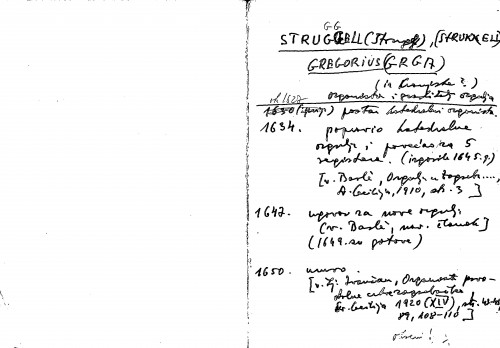 GG
STRUGGELL (Strugl), (STRUKKEL),
GREGORIUS (GRGA)
(iz Kranjske?)
od 1627 orguljaš i graditelj orgulja
1630 postao katedralni orguljaš.
1634. popravio katedralne
orgulje i povećao za 5
registara. (izgorile 1645. g.)
[v. Barlè, Orgulje u Zagreb....,
Sv. Cecilija, 1910, str. 3]
1647. ugovor za nove orgulje
(v. Barlè, nav. članak)
(1649. su gotove)
1650. umro.
[v. Lj. Ivančan, Orguljaši prvo-
stolne crkve zagrebačke,
Sv. Cecilija 1920 (XIV), str.
89, 108-110]